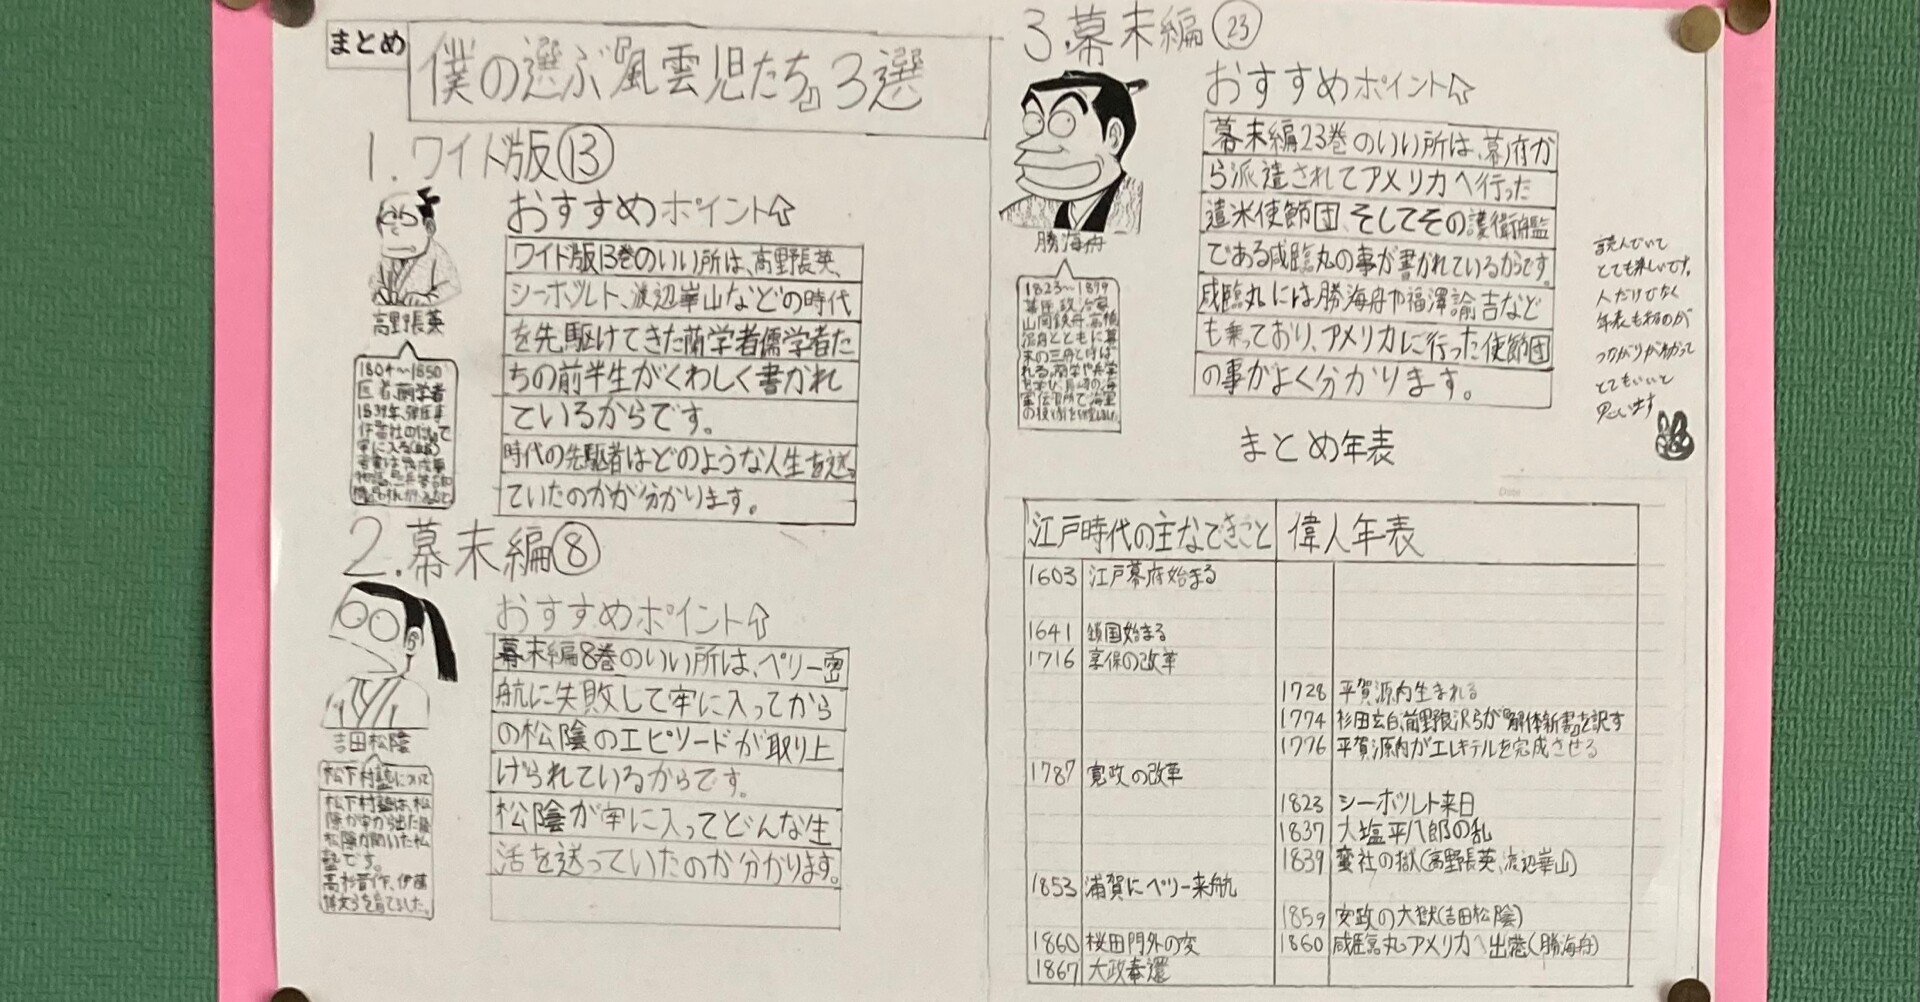 まとめ
僕の選ぶ『風雲児たち』3選
1.ワイド版⑬
高野長英
1804〜1850
医者、蘭学者
おすすめポイント⇧
ワイド版13巻のいい所は、高野長英、
シーボルト、渡辺崋山などの時代
を先駆けてきた蘭学者儒学者た
ちの前半生がくわしく書かれ
ているからです。
時代の先駆者はどのような人生を送っ
ていたのかが分かります。
2.幕末編⑧
吉田松陰
松下村塾について
松下村塾は、松
陰が牢から出た後
松陰が開いた私
塾です。
高杉晋作、伊藤
博文らを育てました。
おすすめポイント⇧
幕末編8巻のいい所は、ペリー密
航に失敗して牢に入ってから
の松陰のエピソードが取り上
げられているからです。
松陰が牢に入ってどんな生
活を送っていたのか分かります。
3.幕末編㉓
勝海舟
1823〜1899
幕臣、政治家
山岡鉄舟、高橋
泥舟とともに幕
末の三舟と呼ば
れる。蘭学や兵学
を学び、長崎の海
軍伝習所で海軍
おすすめポイント⇧
幕末編23巻のいい所は、幕府か
ら派遣されてアメリカへ行った
遣米使節団、そしてその護衛艦
である咸臨丸の事が書かれているからです。
咸臨丸には勝海舟や福澤諭吉など
も乗っており、アメリカに行った使節団
の事がよく分かります。
読んでいて
とても楽しいです。
人だけでなく
年表もあるのが
つながりがわかって
とてもいいと
思います
まとめ年表
Date
江戸時代の主なできごと 偉人年表
1603 江戸幕府始まる
1641 鎖国始まる
1716 享保の改革
1728 平賀源内生まれる
1774 杉田玄白、前野良沢らが『解体新書』を訳す
1776 平賀源内がエレキテルを完成させる
1787 寛政の改革
1823 シーボルト来日
1837 大塩平八郎の乱
1839 蛮社の獄(高野長英、渡辺崋山)
1853 浦賀にペリー来航
1859 安政の大獄(吉田松陰)
1860 桜田門外の変 1860 咸臨丸アメリカへ出港(勝海舟)
1867 大政奉還